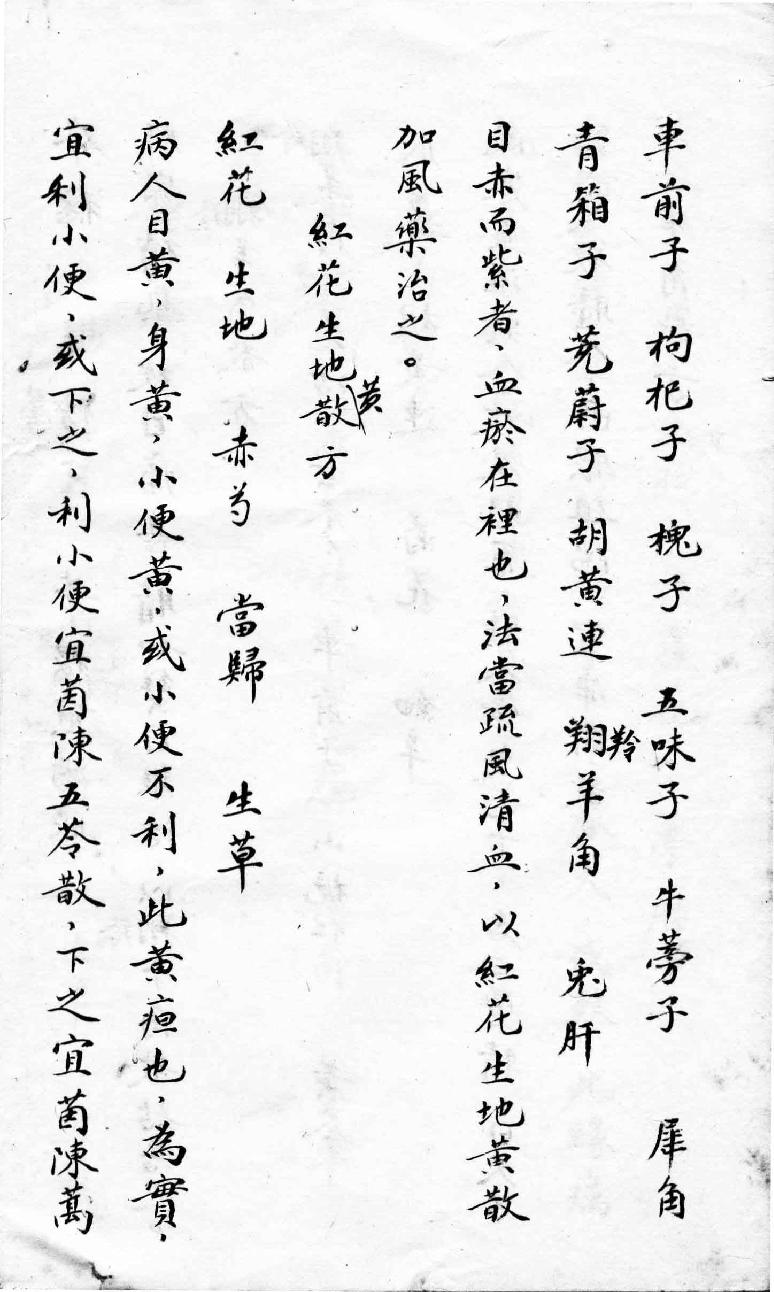 車前子　枸杞子　槐子　五味子　牛蒡子　犀角
青箱子　茺蔚子　胡黃連　羚羊角　兎肝
目赤而紫者、血瘀在裡也，法當疏風清血，以紅花生地黃散
加風藥治之。
紅花生地黃散方
紅花　生地　赤芍　當歸　生草
病人目黃，身黃，小便黃，或小便不利，此黃疸也，為實，
宜利小便，或下之，利小便宜茵陳五苓散，下之宜茵陳蒿